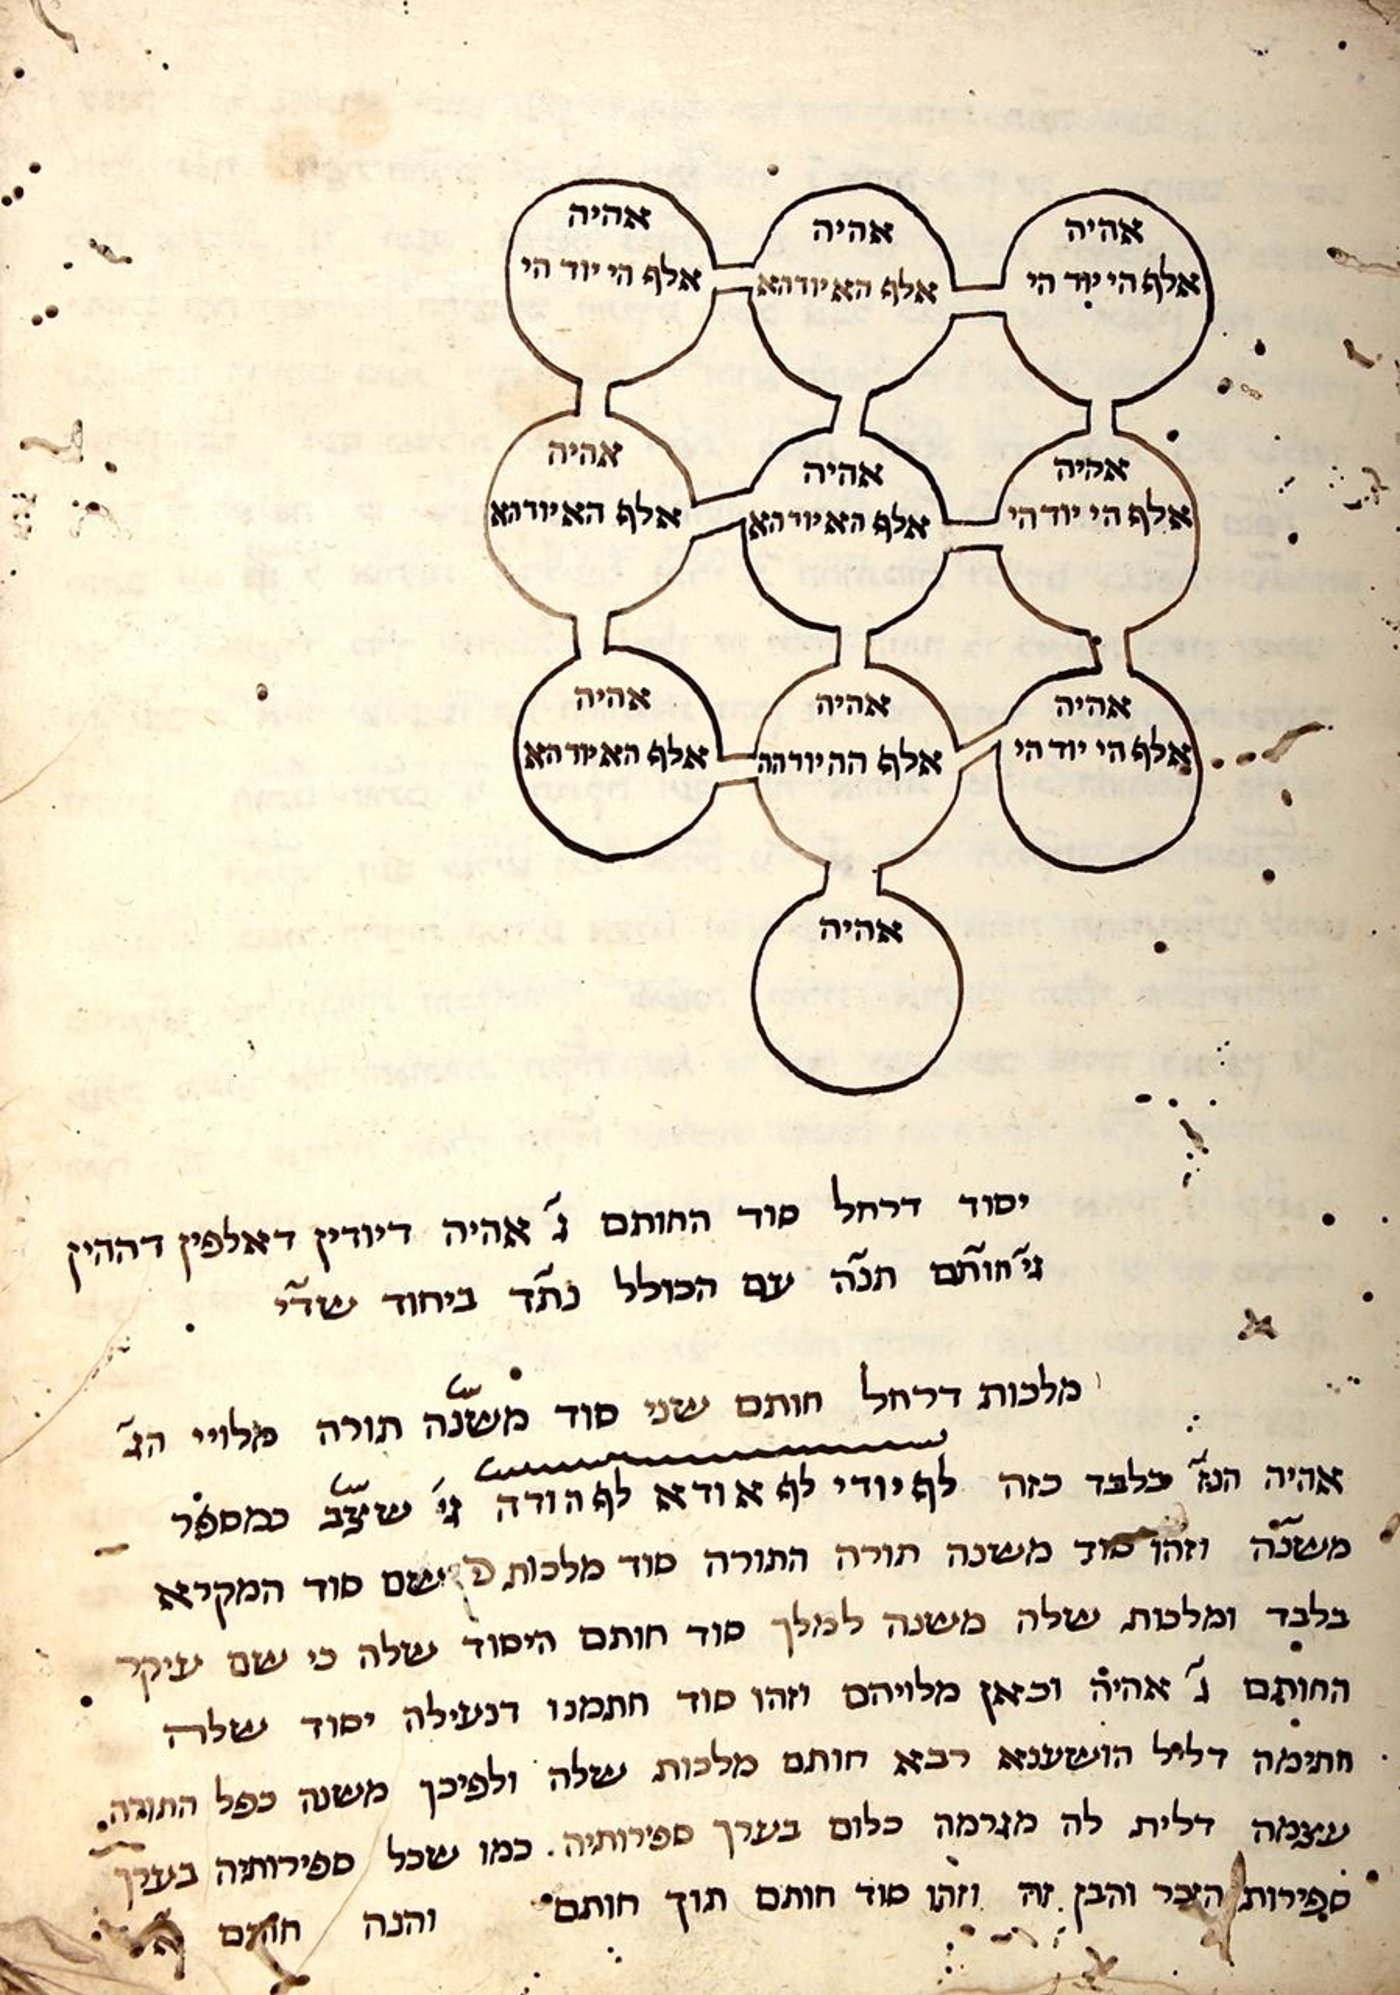 אהיה
אלף הי יוד הי
אהיה
אלף האיודהא
אהיה
אלף הי יוד הי
אהיה
אלף הי יודהי
אהיה
אלף האיודהא
אהיה
אלף האיודהא
אהיה
אלף הי יוד הי
אהיה
אלף ההיודהה
אהיה
אלף האיודהא
אהיה
יסוד דרחל סוד החותם ג' אהיה דיודין דאלפין דההין
גי' חות"ם תנ"ה עם הכולל נת"ד ביחוד שד"י
מלכות דרחל חותם שני סוד משנ"ה תורה מלויי הג'
אהיה הנז' בלבד כזה לף יודי לף אודא לף הודה גי' שצ"ב כמספר
משנ"ה וזהו סוד משנה תורה התורה סוד מלכות ישם סוד המקרא
בלבד ומלכות שלה משנה למלך סוד חותם היסוד שלה כי שם עיקר
החותם ג' אהיה וכאן מלויהם וזהו סוד חתמנו דנעילה יסוד שלה
חתימה דליל הושענא רבא חותם מלכות שלה ולפיכך משנה כפל התורה
עצמה דלית לה מגרמה כלום בערך ספירותיה. כמו שכל ספירותיה בערך
ספירות הזכר והבן זה וזהו סוד חותם תוך חותם והנה חותם